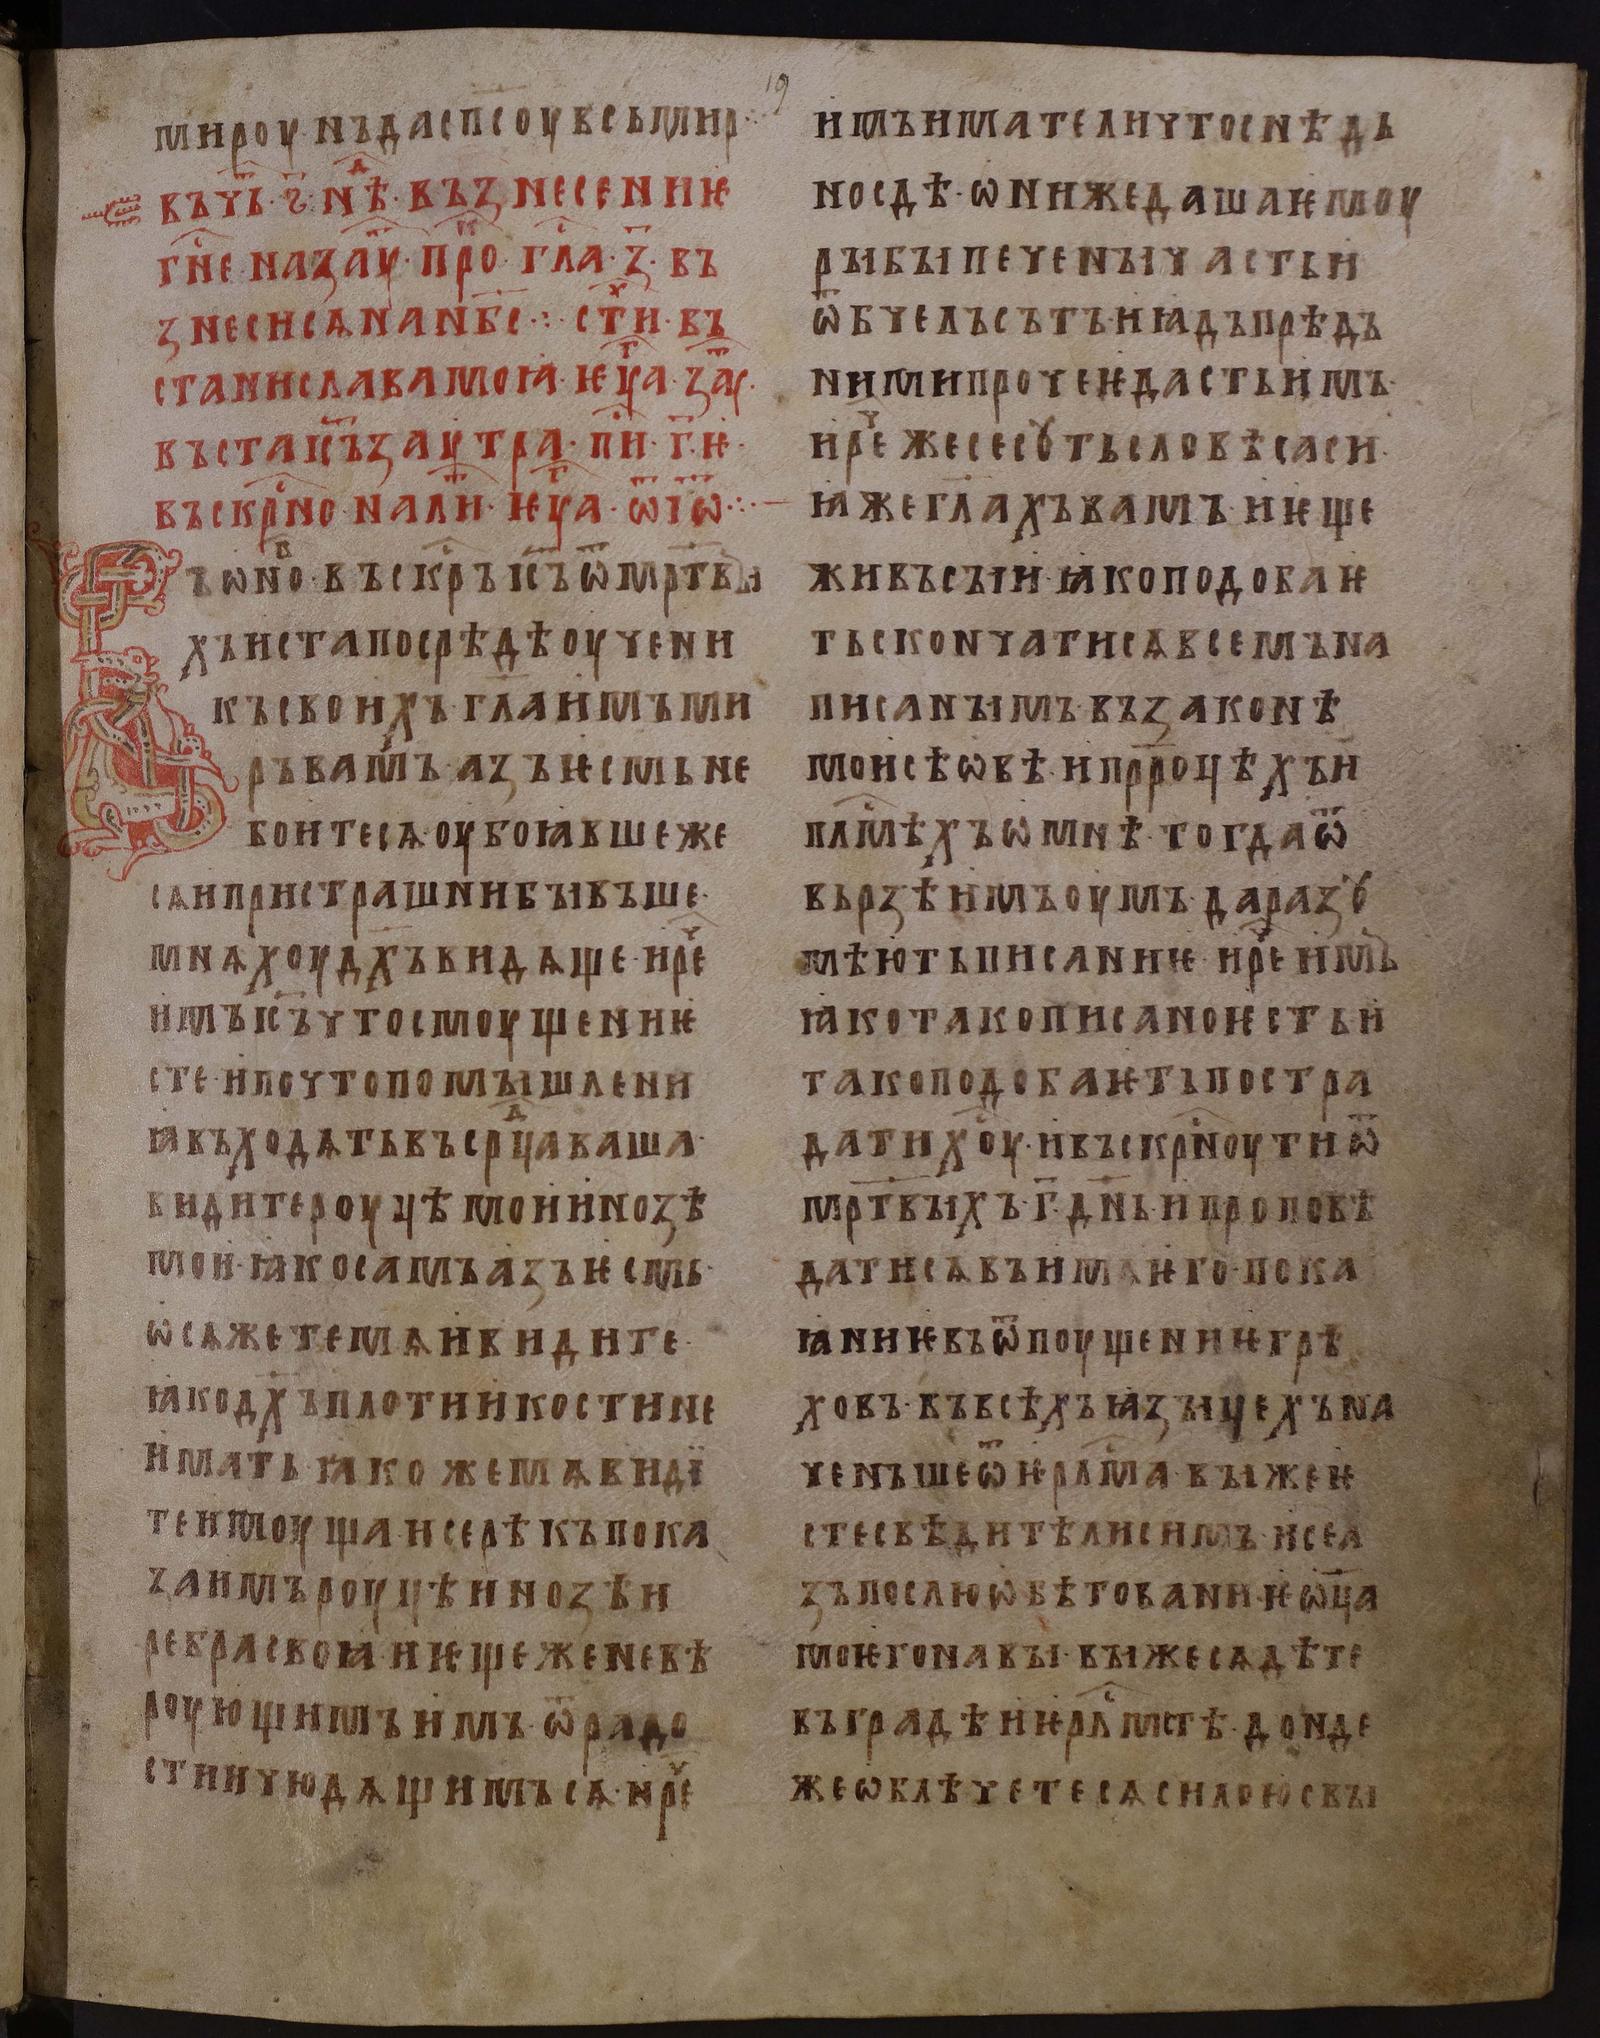 19
мироу нъ да сп҃соу вьсь мир ⁘
въ чь҃ · ѕ҃ · нѣⷣ · възнесениѥ
гн҃е · на заоу҃ · проⷦ · гла҃ · з҃ · въ
знесисѧ на нб҃с ⁘ стиⷯ · въ
стани слава моꙗ · ѥуⷢ҇а · заоу҃ ·
въста іс҃ъ заоутра · пⷭ҇и · г҃ · ѥ ·
въскрⷭ҇но · на лиⷮ · ѥуⷢ҇а · ѿ іѡ҃ ⁘
Въ ѡноⷡ · въскрⷭ҇ъ іс҃ъ ѿ мр҃твы
хъ и ста посрѣдѣ оучени
къ своихъ · гл҃а имъ ми
ръ вамъ · азъ ѥсмь не
боитесѧ · оубоꙗвше же
сѧ и пристрашни бывъше ·
мнѧхоу дх҃ъ видѧще · и рⷱ҇е
имъ іс҃ъ что смоущениѥ
сте · и по что помышлени
ꙗ въходѧть въ срⷣца ваша ·
видите роуцѣ мои и нозѣ
мои · ꙗко самъ азъ ѥсмь ·
ѡсѧжете мѧ и видите ·
ꙗко дх҃ъ плоти и кости не
имать · ꙗкоже мѧ види
те имоуща · и се рѣкъ пока
за имъ роуцѣ и нозѣ и
ребра своꙗ · и ѥще же невѣ
роующимъ имъ · ѿ радо
сти и чюдѧщимъсѧ · и рⷱ҇е
имъ имате ли что снѣдь
но сдѣ · ѡни же даша ѥмоу
рыбы печены часть и
ѿ бчелъ сътъ · и ꙗдъ прѣдъ
ними прочеѥ дасть имъ ·
и рⷱ҇е же се сꙋть словѣса си ·
ꙗже гл҃ахъ вамъ · и ѥще
живъ сыи · ꙗко подобаѥ
ть скончатисѧ всемъ на
писанымъ · въ законѣ
моисѣѡвѣ · и прр҃оцѣхъ и
плⷭ҇мѣхъ ѡ мнѣ · тогда ѿ
вьрзѣ имъ оумъ · да разꙋ
мѣють писаниѥ · и рⷱ҇е имъ
ꙗко тако писано ѥсть и
тако подобаѥть постра
дати хⷭ҇оу · и въскрⷭ҇ноути ѿ
мр҃твыхъ · г҃ · дн҃ь · и проповѣ
датисѧ въ имѧ ѥго · пока
ꙗниѥ въ ѿпоущениѥ грѣ
ховъ · въ всѣхъ ꙗзыцехъ на
ченъше ѿ ѥрлⷭ҇ма · вы же ѥ
сте свѣдитѣли симъ · и се а
зъ послю ѡбѣтованиѥ ѡц҃а
моѥго на вы · вы же сѧдѣте
въ градѣ иѥрлⷭ҇мстѣ · донде
же ѡблѣчетесѧ силою свы